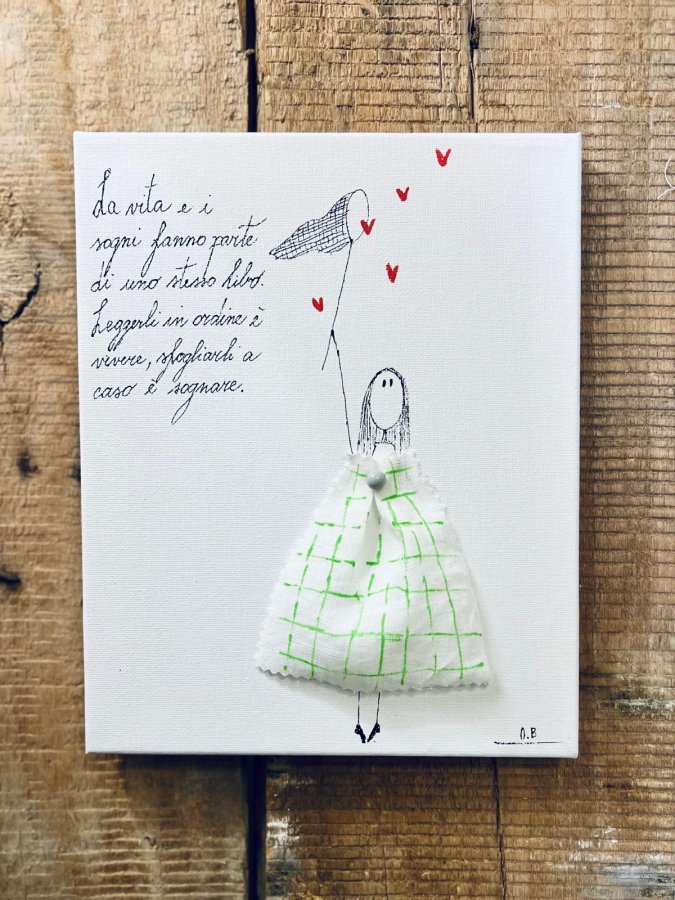 La vita e i
sogni fanno parte
di uno stesso libro.
Leggerli in ordine è
vivere, sfogliarli a
caso è sognare.
O.B